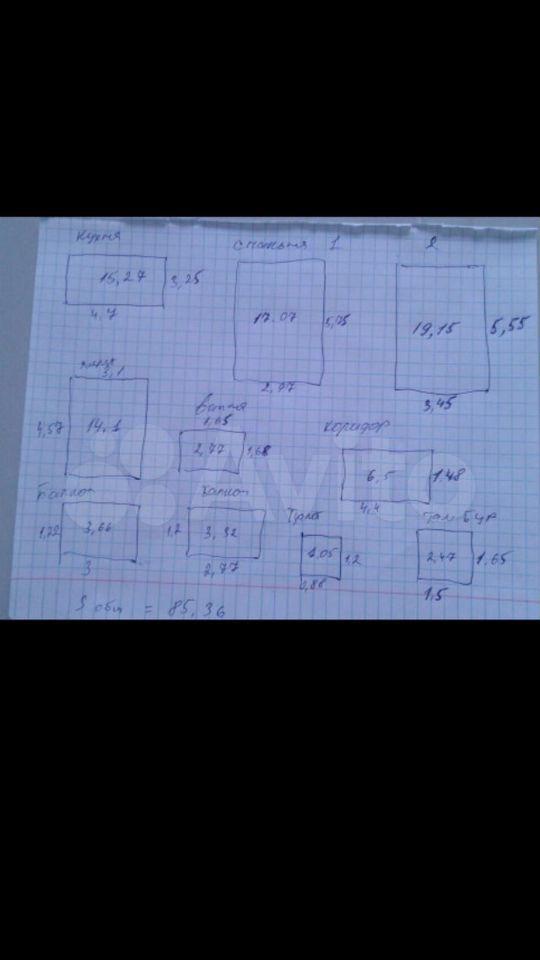 кухня
15,27 3,25
4,7
спальня 1
17.07 5,75
2,97
2
19,15 5,55
3,45
3,1
4,57 14.1
ванна
1,65
2,77 1,68
коридор
6,5 1.48
4,4
балкон
1,22 3,66
3
балкон
1,2 3,32
2,77
1,05 1,2
0,88
тамбур
2,47 1,65
1.5
S общ = 85,36
AVITO